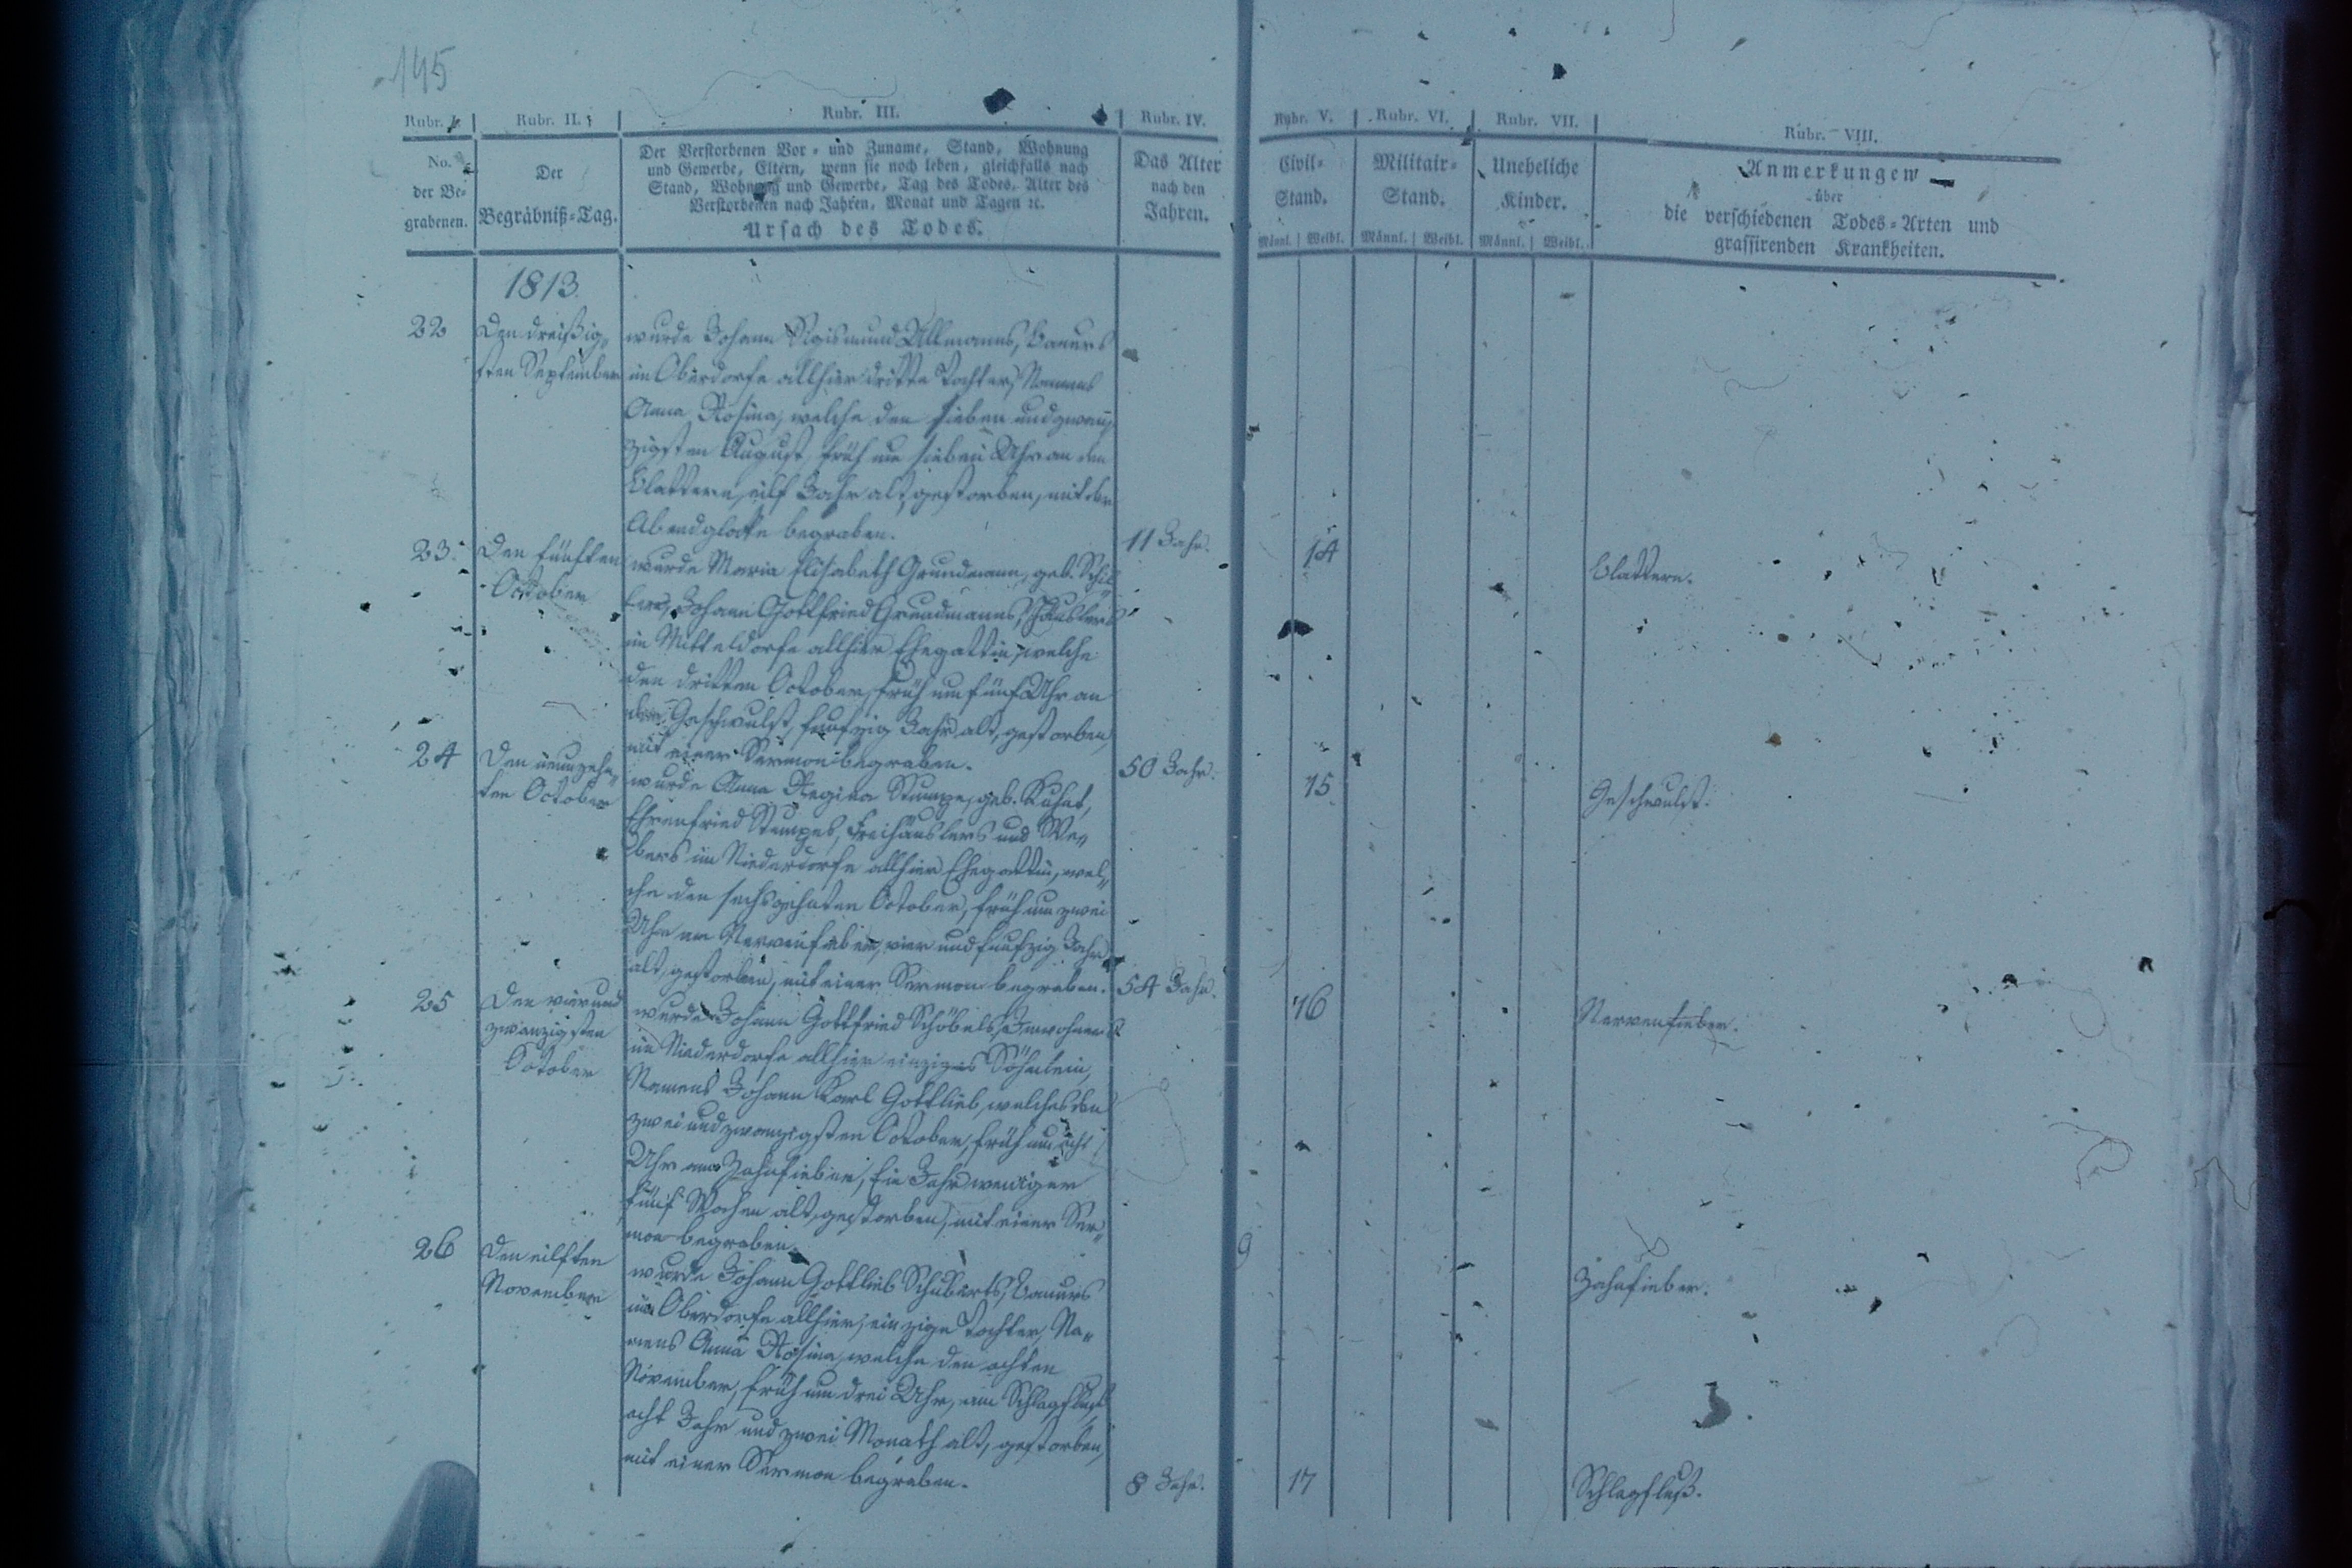 145
Rubr. I. Rubr. II. Rubr. III. Rubr. IV. Rubr. V. Rubr. VI. Rubr. VII. Rubr. VIII.
No. der Be-grabenen.
Der Begräbniß-Tag.
Der Verstorbenen Vor- und Zuname, Stand, Wohnung
und Gewerbe, Eltern, wenn sie noch leben, gleichfalls nach
Stand, Wohnung und Gewerbe, Tag des Todes, Alter des
Verstorbenen nach Jahren, Monat und Tagen ꝛc.
Ursach des Todes.
Das Alter
nach den
Jahren.
Civil-
Stand.
Männl. Weibl.
Militair-
Stand.
Männl. Weibl.
Uneheliche
Kinder.
Männl. Weibl.
Anmerkungen
über
die verschiedenen Todes-Arten und
grassirenden Krankheiten.
1813.
22
Den dreißig-
sten September
wurde Johann Sigismund Ullmanns, Bauers
im Oberdorfe allhier dritte Tochter, Namens
Anna Rosina, welche den sieben und zwan-
zigsten August, früh um sieben Uhr an den
Blattern, eilf Jahr alt, gestorben, mit der
Abendglocke begraben.
11 Jahr.
14
Blattern.
23.
Den fünften
October
wurde Maria Elisabeth Grundmann, geb. Schil-
ler, Johann Gottfried Grundmanns, Häuslers
im Mitteldorfe allhier Ehegattin, welche
den dritten October, früh um fünf Uhr an
der Geschwulst, funfzig Jahr alt, gestorben,
mit einer Sermon begraben.
50 Jahr.
15.
Geschwulst.
24
Den neunzehn-
ten October
wurde Anna Regina Stumpe, geb.
Ehrenfried Stumpes, Freihäuslers und We-
bers im Niederdorfe allhier Ehegattin, wel-
che den sechszehnten October, früh um zwei
Uhr am Nervenfieber, vier und funfzig Jahr
alt, gestorben, mit einer Sermon begraben.
54 Jahr.
16
Nervenfieber.
25
Den vier und
zwanzigsten
October
wurde Johann Gottfried Schöbels, Inwohners
im Niederdorfe allhier einziges Söhnlein,
Namens Johann Karl Gottlieb, welches den
zwei und zwanzigsten October, früh um acht
Uhr am Zahnfieber, Ein Jahr weniger
fünf Wochen alt, gestorben, mit einer Ser-
mon begraben.
9
Zahnfieber.
26
Den eilften
November
wurde Johann Gottlieb Schuberts, Bauers
im Oberdorfe allhier, einzige Tochter, Na-
mens Anna Rosina, welche den achten
November, früh um drei Uhr, am Schlagfluß,
acht Jahr und zwei Monath alt, gestorben,
mit einer Sermon begraben.
8 Jahr.
17
Schlagfluß.